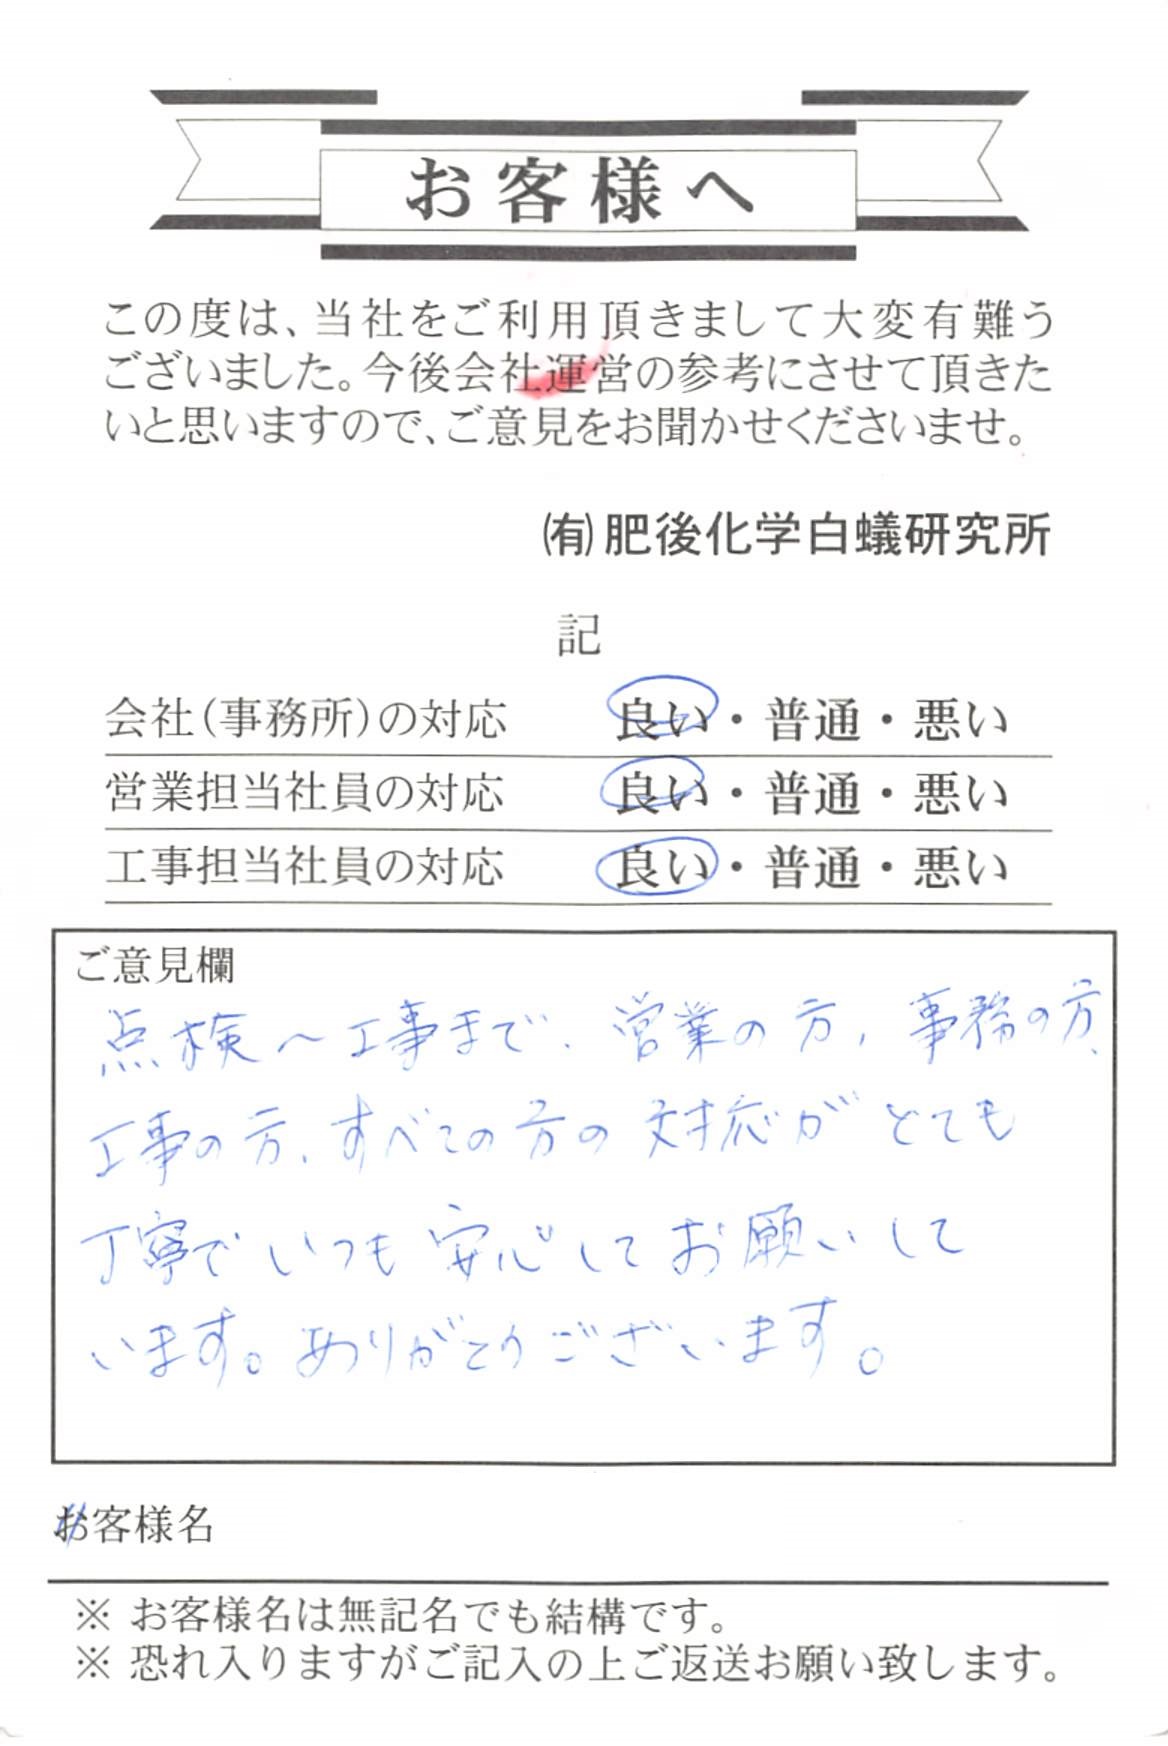 お客様へ
この度は、当社をご利用頂きまして大変有難う
ございました。今後会社運営の参考にさせて頂きた
いと思いますので、ご意見をお聞かせくださいませ。
㈲肥後化学白蟻研究所
記
会社(事務所)の対応 良い・普通・悪い
営業担当社員の対応 良い・普通・悪い
工事担当社員の対応 良い・普通・悪い
ご意見欄
点検～工事まで、営業の方、事務の方、
工事の方、すべての方の対応がとても
丁寧でいつも安心してお願いして
います。ありがとうございます。
お客様名
※ お客様名は無記名でも結構です。
※ 恐れ入りますがご記入の上ご返送お願い致します。